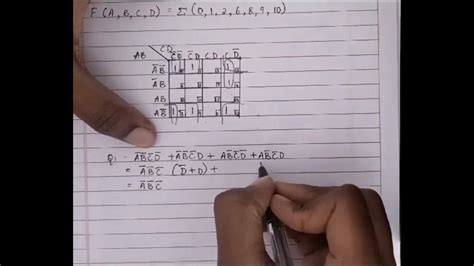 F (A, B, C, D) = Σ (0, 1, 2, 6, 8, 9, 10)
CD
AB C̅D̅ C̅D CD CD̅
A̅B̅ 1 1 1
A̅B 1
AB
AB̅ 1 1 1
Q₁ = A̅B̅C̅D̅ + A̅B̅C̅D + AB̅C̅D̅ + AB̅C̅D
= A̅B̅C̅ (D̅+D) +
= A̅B̅C̅